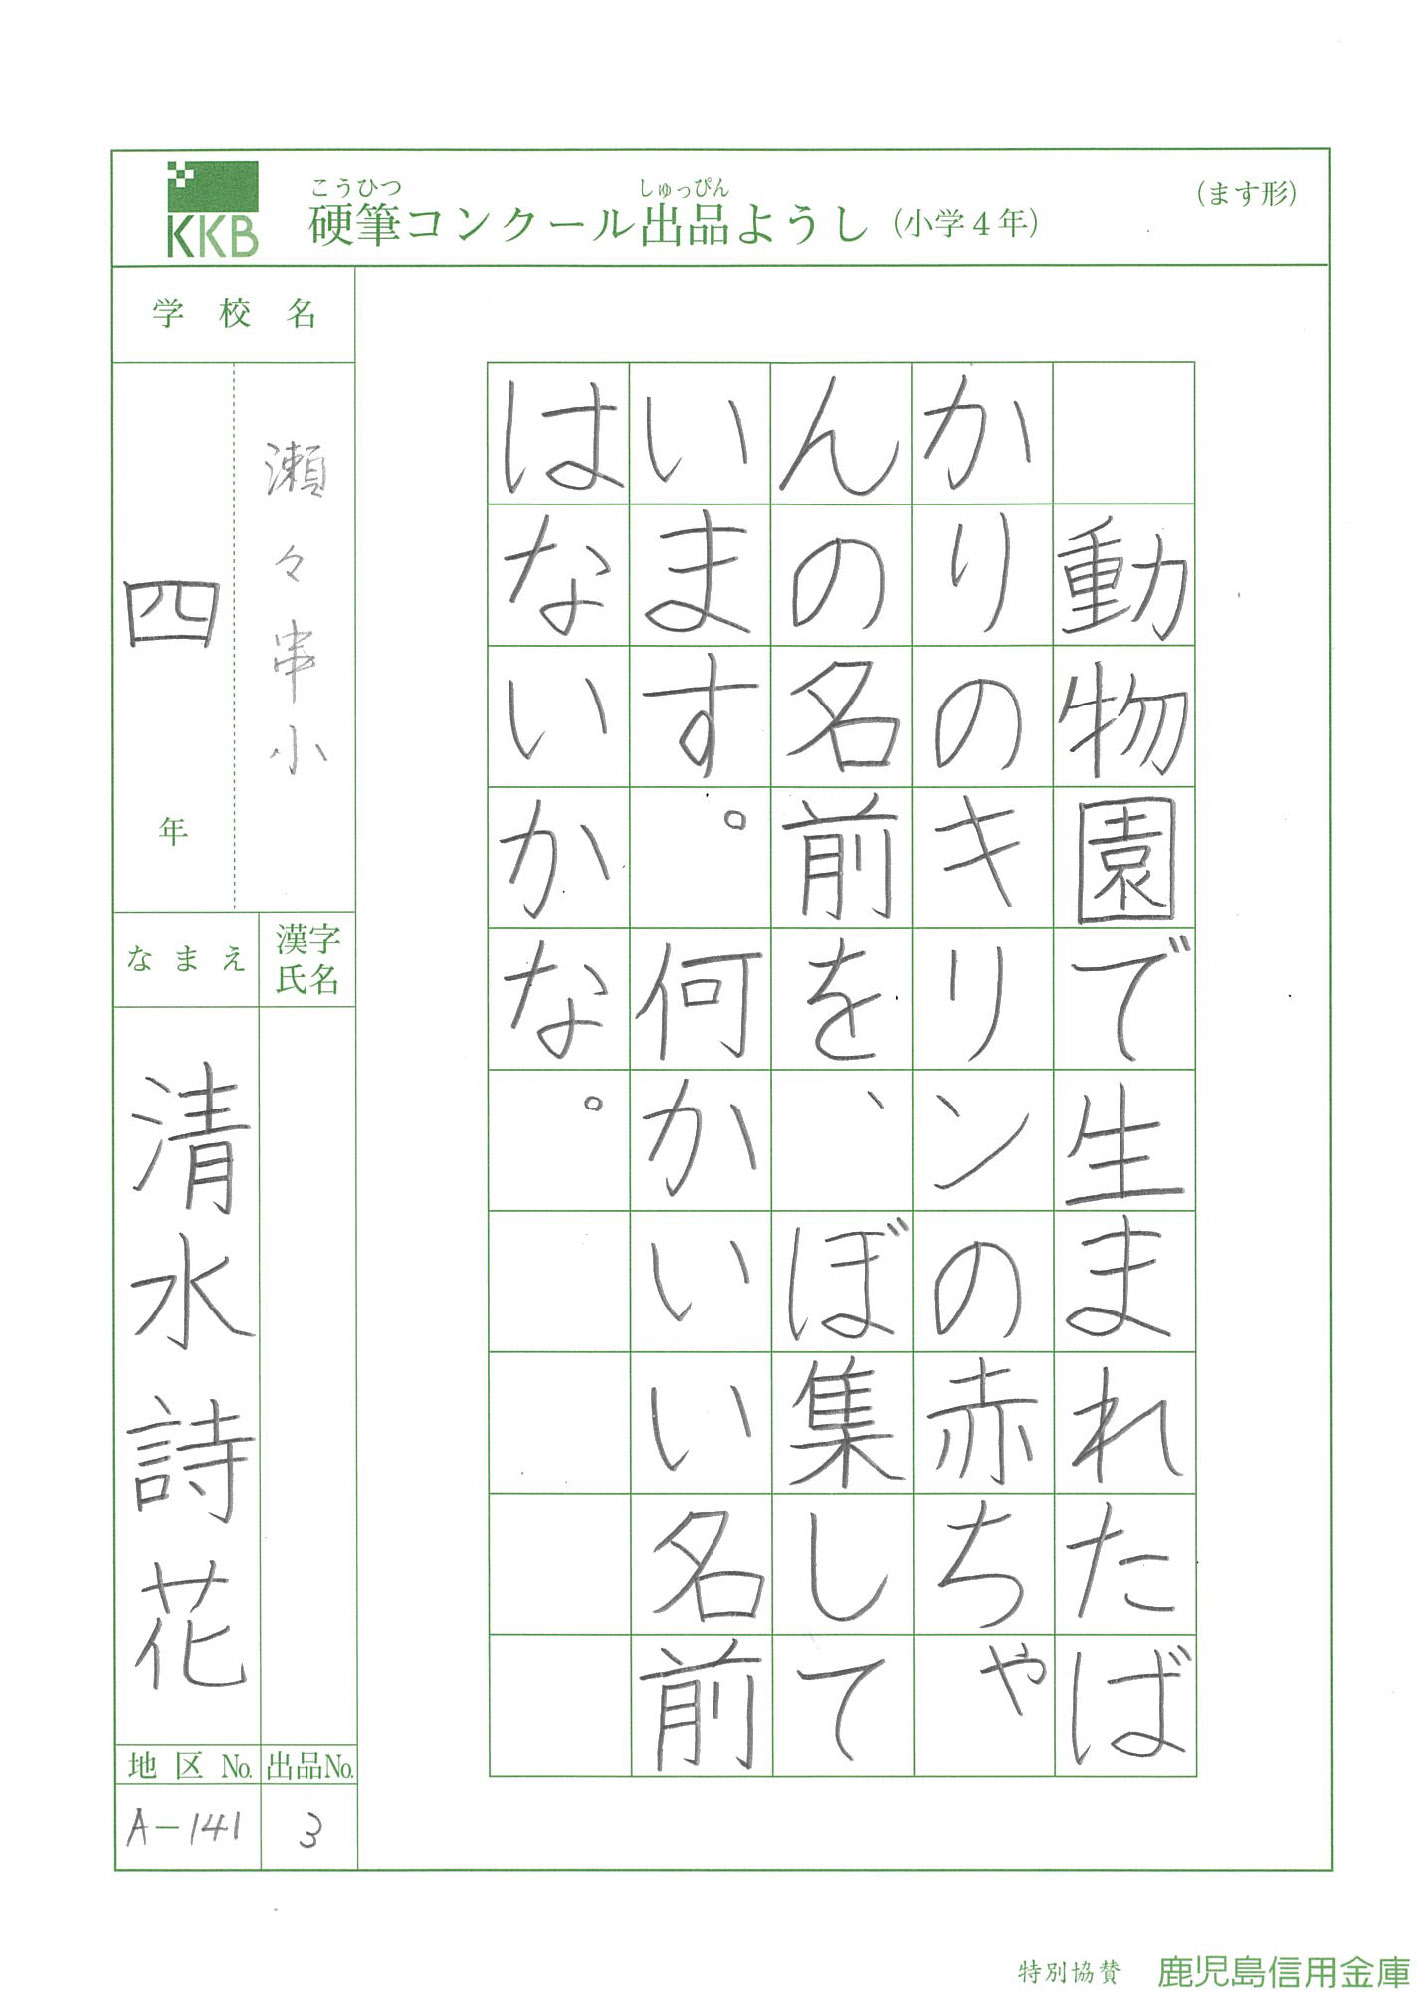 KKB
こうひつ しゅっぴん
硬筆コンクール出品ようし（小学４年）
（ます形）
動物園で生まれたば
かりのキリンの赤ちゃ
んの名前を、ぼ集して
います。何かいい名前
はないかな。
学校名
瀬々串小
四年
漢字氏名
なまえ
清水詩花
地区No.
A-141
出品No.
3
特別協賛 鹿児島信用金庫